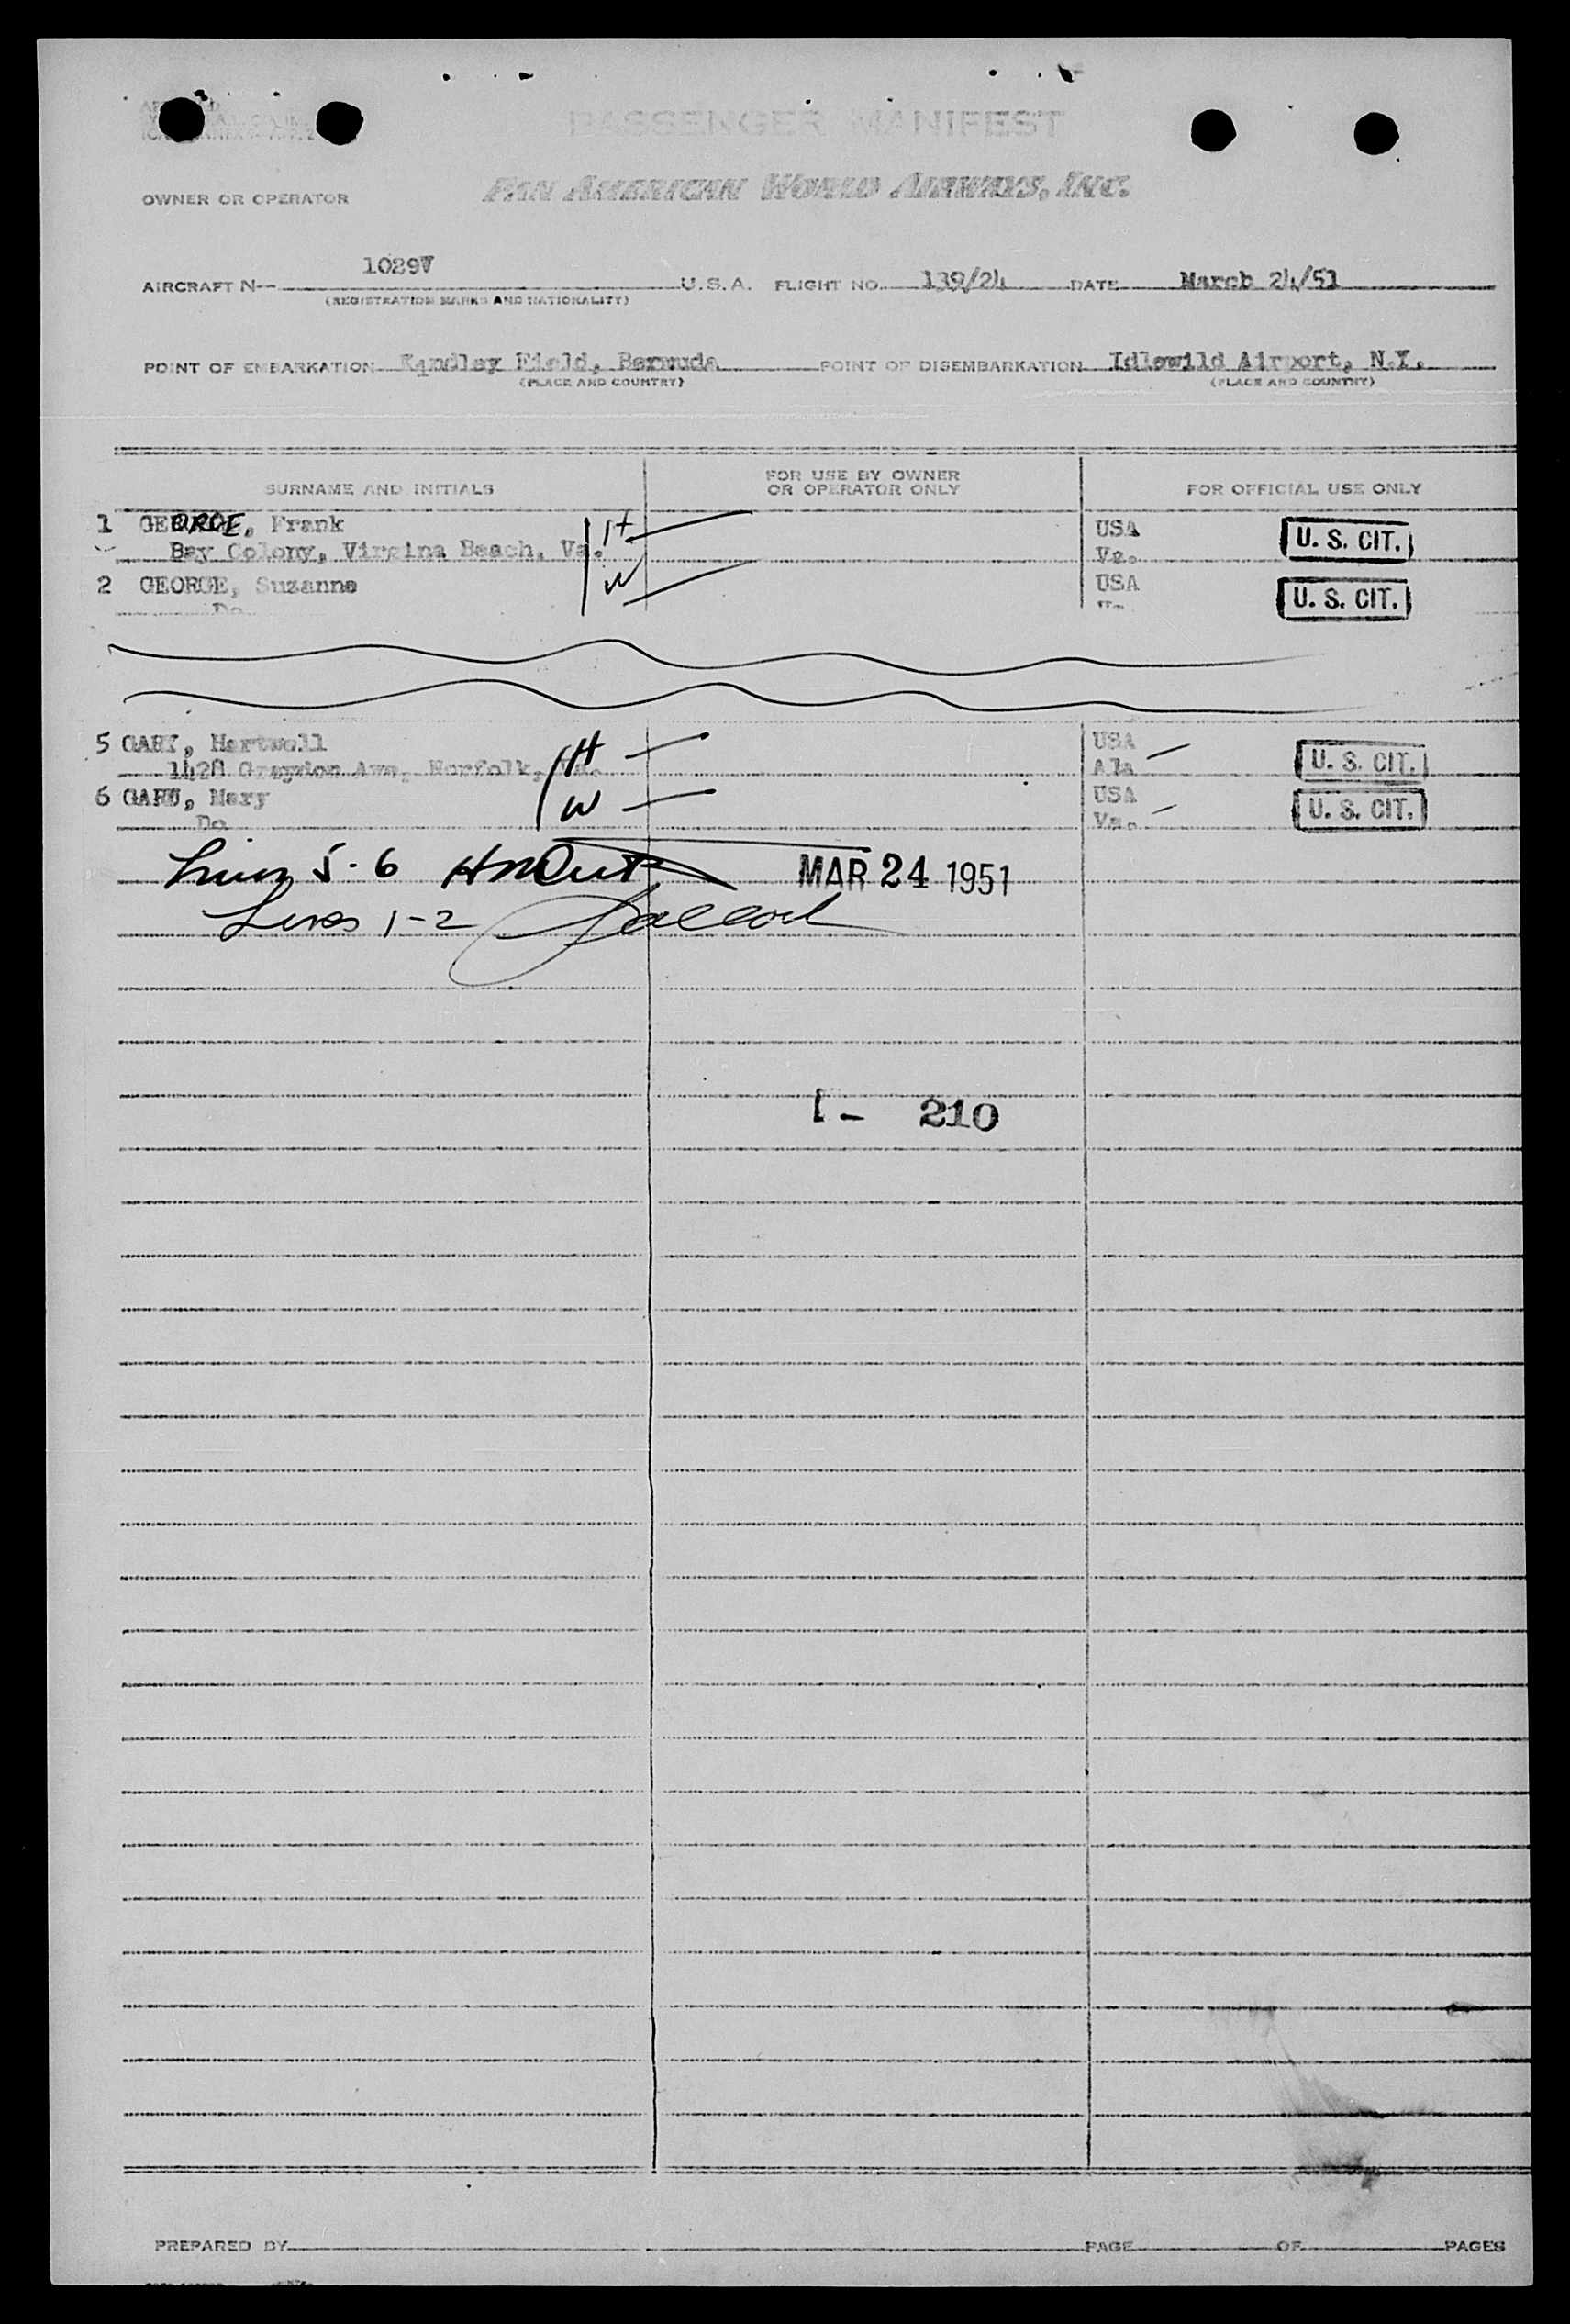 PASSENGER MANIFEST
OWNER OR OPERATOR PAN AMERICAN WORLD AIRWAYS, INC.
AIRCRAFT N-- 1029V U.S.A. FLIGHT NO. 139/24 DATE March 24/51
(REGISTRATION MARKS AND NATIONALITY)
POINT OF EMBARKATION Kindley Field, Bermuda POINT OF DISEMBARKATION Idlewild Airport, N.Y.
(PLACE AND COUNTRY) (PLACE AND COUNTRY)
SURNAME AND INITIALS FOR USE BY OWNER OR OPERATOR ONLY FOR OFFICIAL USE ONLY
1 GEORGE, Frank H USA U. S. CIT.
Bay Colony, Virgina Beach, Va. Va.
2 GEORGE, Suzanne W USA U. S. CIT.
Do
5 GARY, Hartwell H USA U. S. CIT.
Graydon Ave. Norfolk, Va. Ala
6 GARY, Mary W USA U. S. CIT.
Do Va.
Lines 5-6 MAR 24 1951
Lines 1-2
I - 210
PREPARED BY PAGE OF PAGES